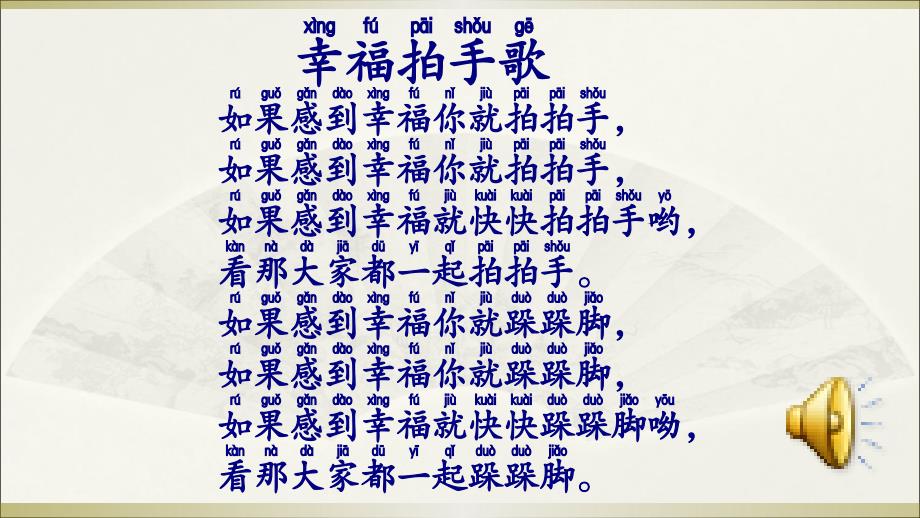 xìng fú pāi shǒu gē
幸福拍手歌
rú guǒ gǎn dào xìng fú nǐ jiù pāi pāi shǒu
如果感到幸福你就拍拍手，
rú guǒ gǎn dào xìng fú nǐ jiù pāi pāi shǒu
如果感到幸福你就拍拍手，
rú guǒ gǎn dào xìng fú jiù kuài kuài pāi pāi shǒu yō
如果感到幸福就快快拍拍手哟，
kàn nà dà jiā dū yī qǐ pāi pāi shǒu
看那大家都一起拍拍手。
rú guǒ gǎn dào xìng fú nǐ jiù duò duò jiǎo
如果感到幸福你就跺跺脚，
rú guǒ gǎn dào xìng fú nǐ jiù duò duò jiǎo
如果感到幸福你就跺跺脚，
rú guǒ gǎn dào xìng fú jiù kuài kuài duò duò jiǎo yōu
如果感到幸福就快快跺跺脚呦，
kàn nà dà jiā dū yī qǐ duò duò jiǎo
看那大家都一起跺跺脚。